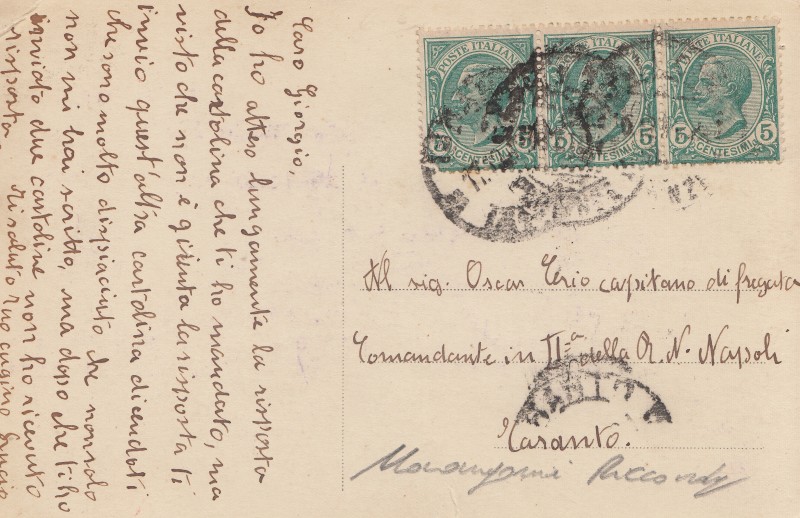 Caro Giorgio,
Io ho atteso lungamente la risposta
della cartolina che ti ho mandato, ma
visto che non è giunta la risposta ti
invio quest'altra cartolina dicendoti
che sono molto dispiaciuto che non solo
non mi hai scritto, ma dopo che ti ho
inviato due cartoline non ho ricevuto
risposta Ti saluto tuo cugino
POSTE ITALIANE
5 CENTESIMI 5
POSTE ITALIANE
5 CENTESIMI 5
POSTE ITALIANE
5 CENTESIMI 5
Al sig. Oscar capitano di fregata
Comandante in IIª della R. N. Napoli
Taranto.